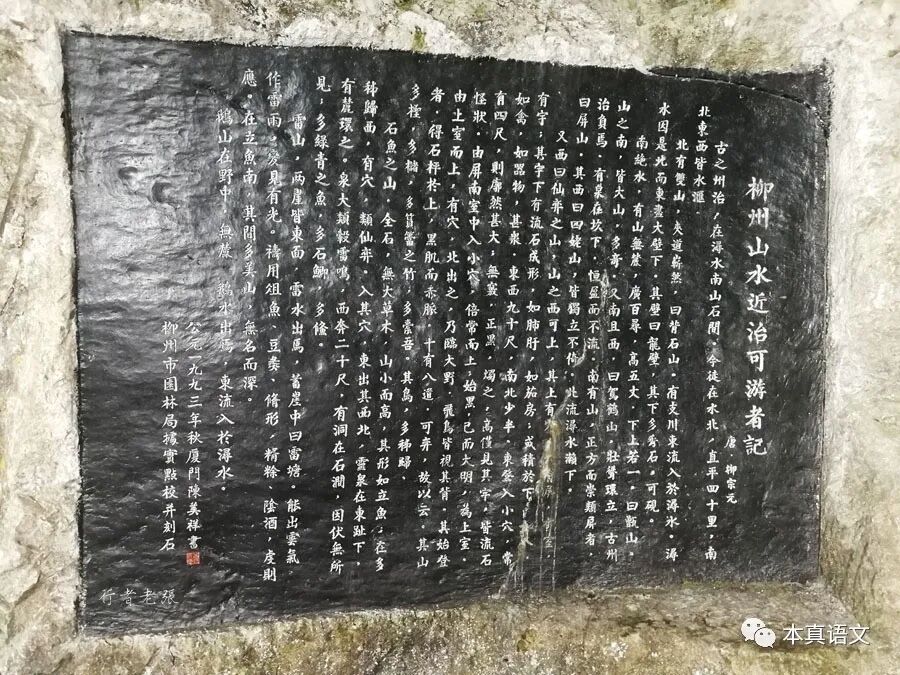 柳州山水近治可游者記
唐 柳宗元
古之州治，在潯水南山石間。今徙在水北，直平四十里，南
北東西皆水滙。
北有雙山，夾道嶄然，曰背石山。有支川東流入於潯水。潯
水因是北而東，盡大壁下。其壁曰龍壁，其下多秀石，可硯。
南絶水，有山無麓，廣百尋，高五丈，下上若一，曰甑山。
山之南，皆大山，多奇。又南且西，曰駕鶴山，壯聳環立，古州
治負焉。有泉在坎下，恒盈而不流。南有山，正方而崇類屏者，
曰屏山。其西曰四姥山，皆獨立不倚。北流潯水瀨下。
又西曰仙弈之山，山之西可上，其上有
有宇，其宇下有流石成形，如肺肝，如茄房，或積於下，
如禽，如器物，甚衆。東西九十尺，南北少半。東登入小穴，常
有四尺，則廓然甚大，無竅，正黑，燭之，高僅見其宇，皆流石
怪狀。由屏南室中入小穴，倍常而上，始黑，已而大明，為上室。
由上室而上，有穴，北出之，乃臨大野，飛鳥皆視其背。其始登
者，得石枰於上，黑肌而赤脈，十有八道，可弈，故以云。其山
多檉，多櫧，多篔簹之竹，多橐吾，其鳥，多秭歸。
石魚之山，全石，無大草木，山小而高，其形如立魚，在多
秭歸西，有穴，類仙弈。入其穴，東出其西北，靈泉在東趾下，
有麓環之。泉大類轂雷鳴，西奔二十尺，有洞在石澗，因伏無所
見，多綠青之魚，多石鯽，多鯈。
雷山，两崖皆東面，雷水出焉，蓄崖中曰雷塘，能出雲氣，
作雷雨，變見有光。禱用俎魚、豆彘、脩形、糈稌、陰酒，虔則
應。在立魚南，其間多美山，無名而深。
鵝山在野中，無麓，鵝水出焉，東流入於潯水。
公元一九九三年秋厦門陳美祥書
柳州市園林局據實點校并刻石
張老者行
本真语文